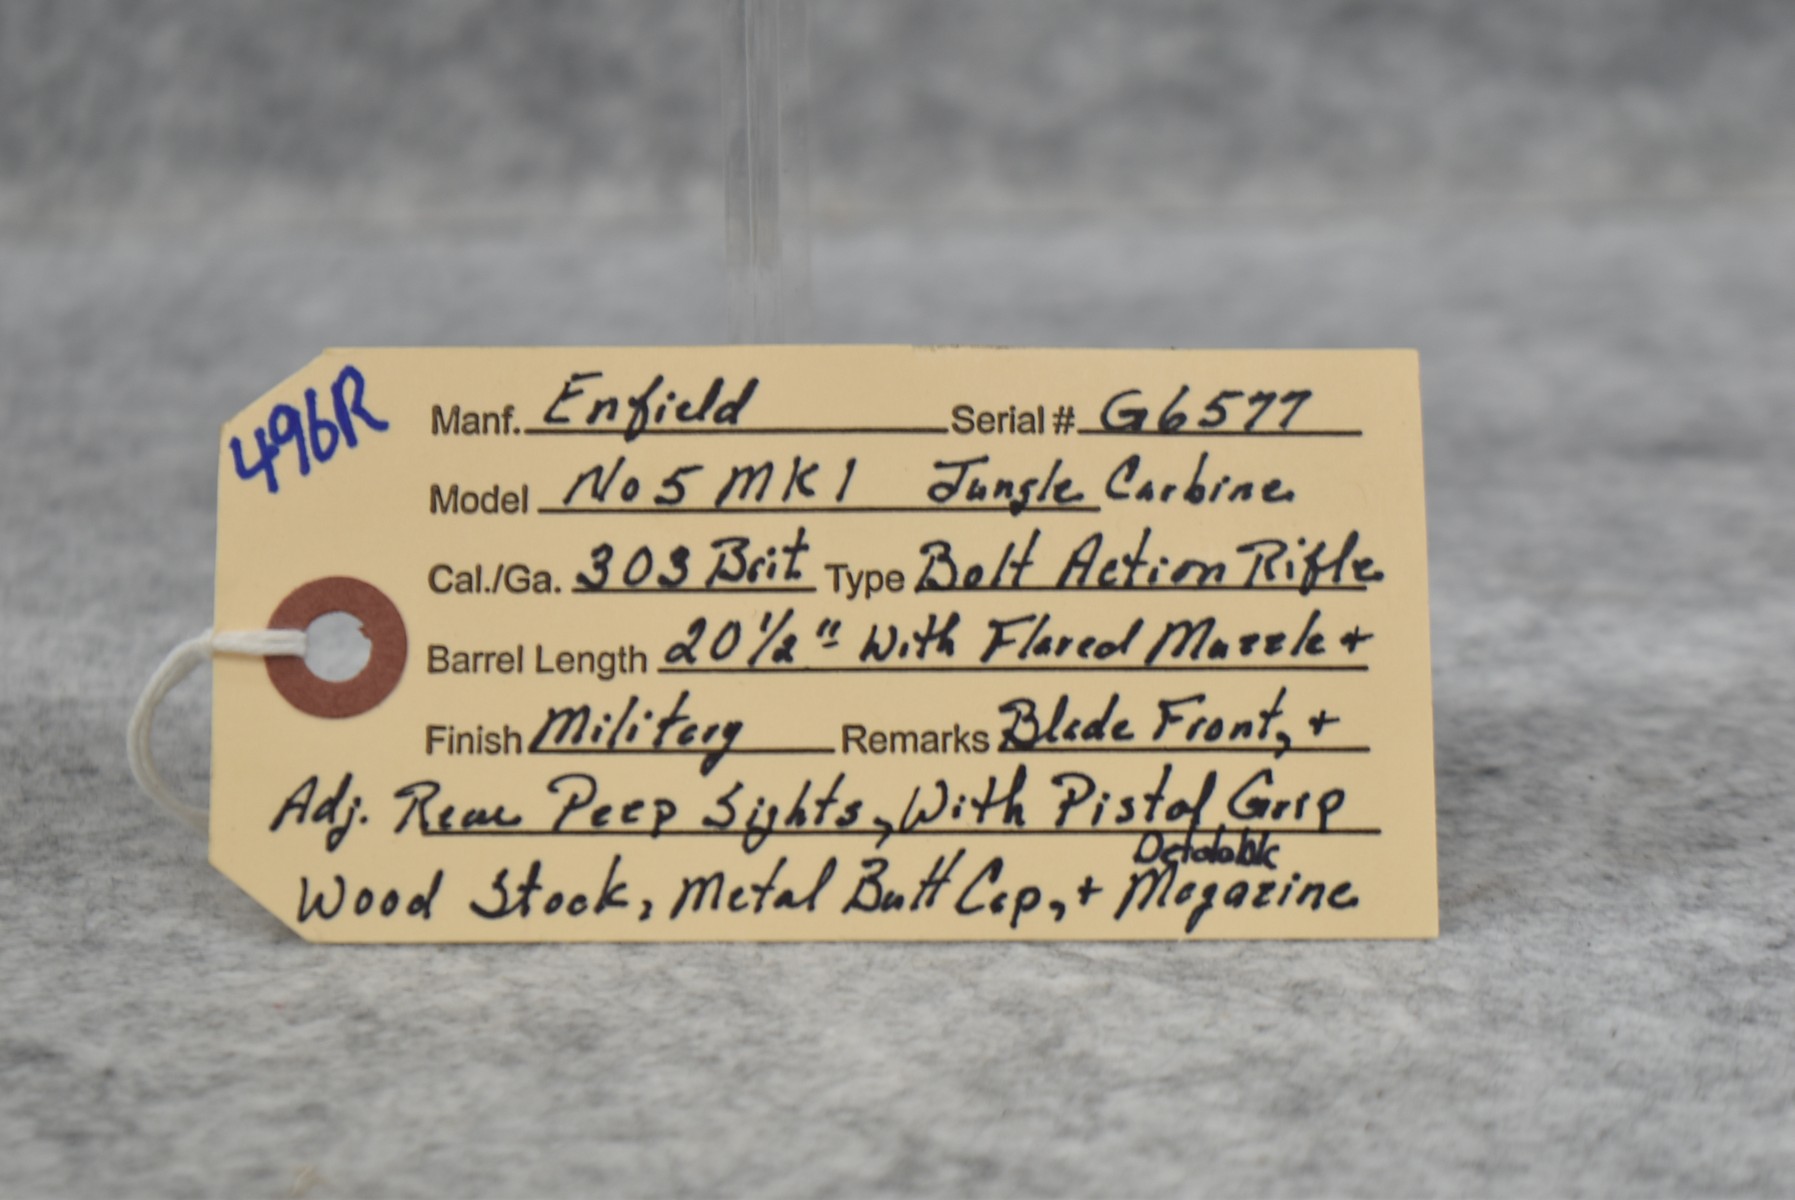 496R
Manf. Enfield Serial # G6577
Model No 5 MK 1 Jungle Carbine
Cal./Ga. 303 Brit Type Bolt Action Rifle
Barrel Length 20 1/2" With Flared Muzzle +
Finish Military Remarks Blade Front, +
Adj. Rear Peep Sights, With Pistol Grip
Wood Stock, Metal Butt Cap, + Magazine